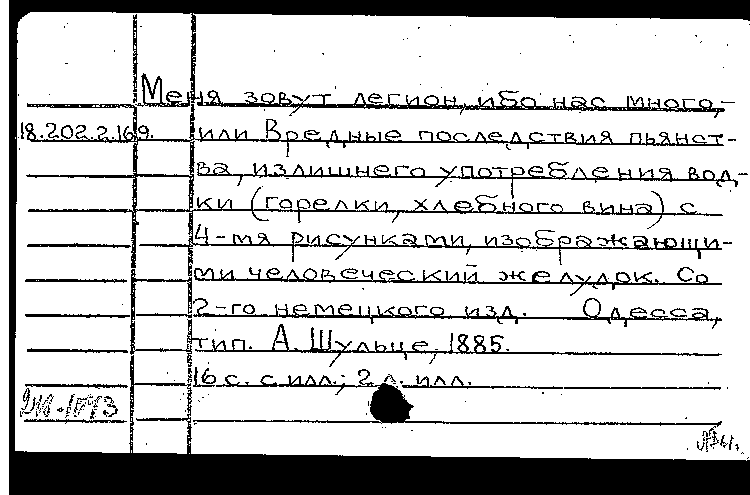 Меня зовут легион, ибо нас много,-
18.202.2.169. или Вредные последствия пьянст-
ва, излишнего употребления вод-
ки (горелки, хлебного вина) с
4-мя рисунками, изображающи-
ми человеческий желудок. Со
2-го немецкого изд. Одесса,
тип. А. Шульце, 1885.
16 с. с илл.; 2 л. илл.